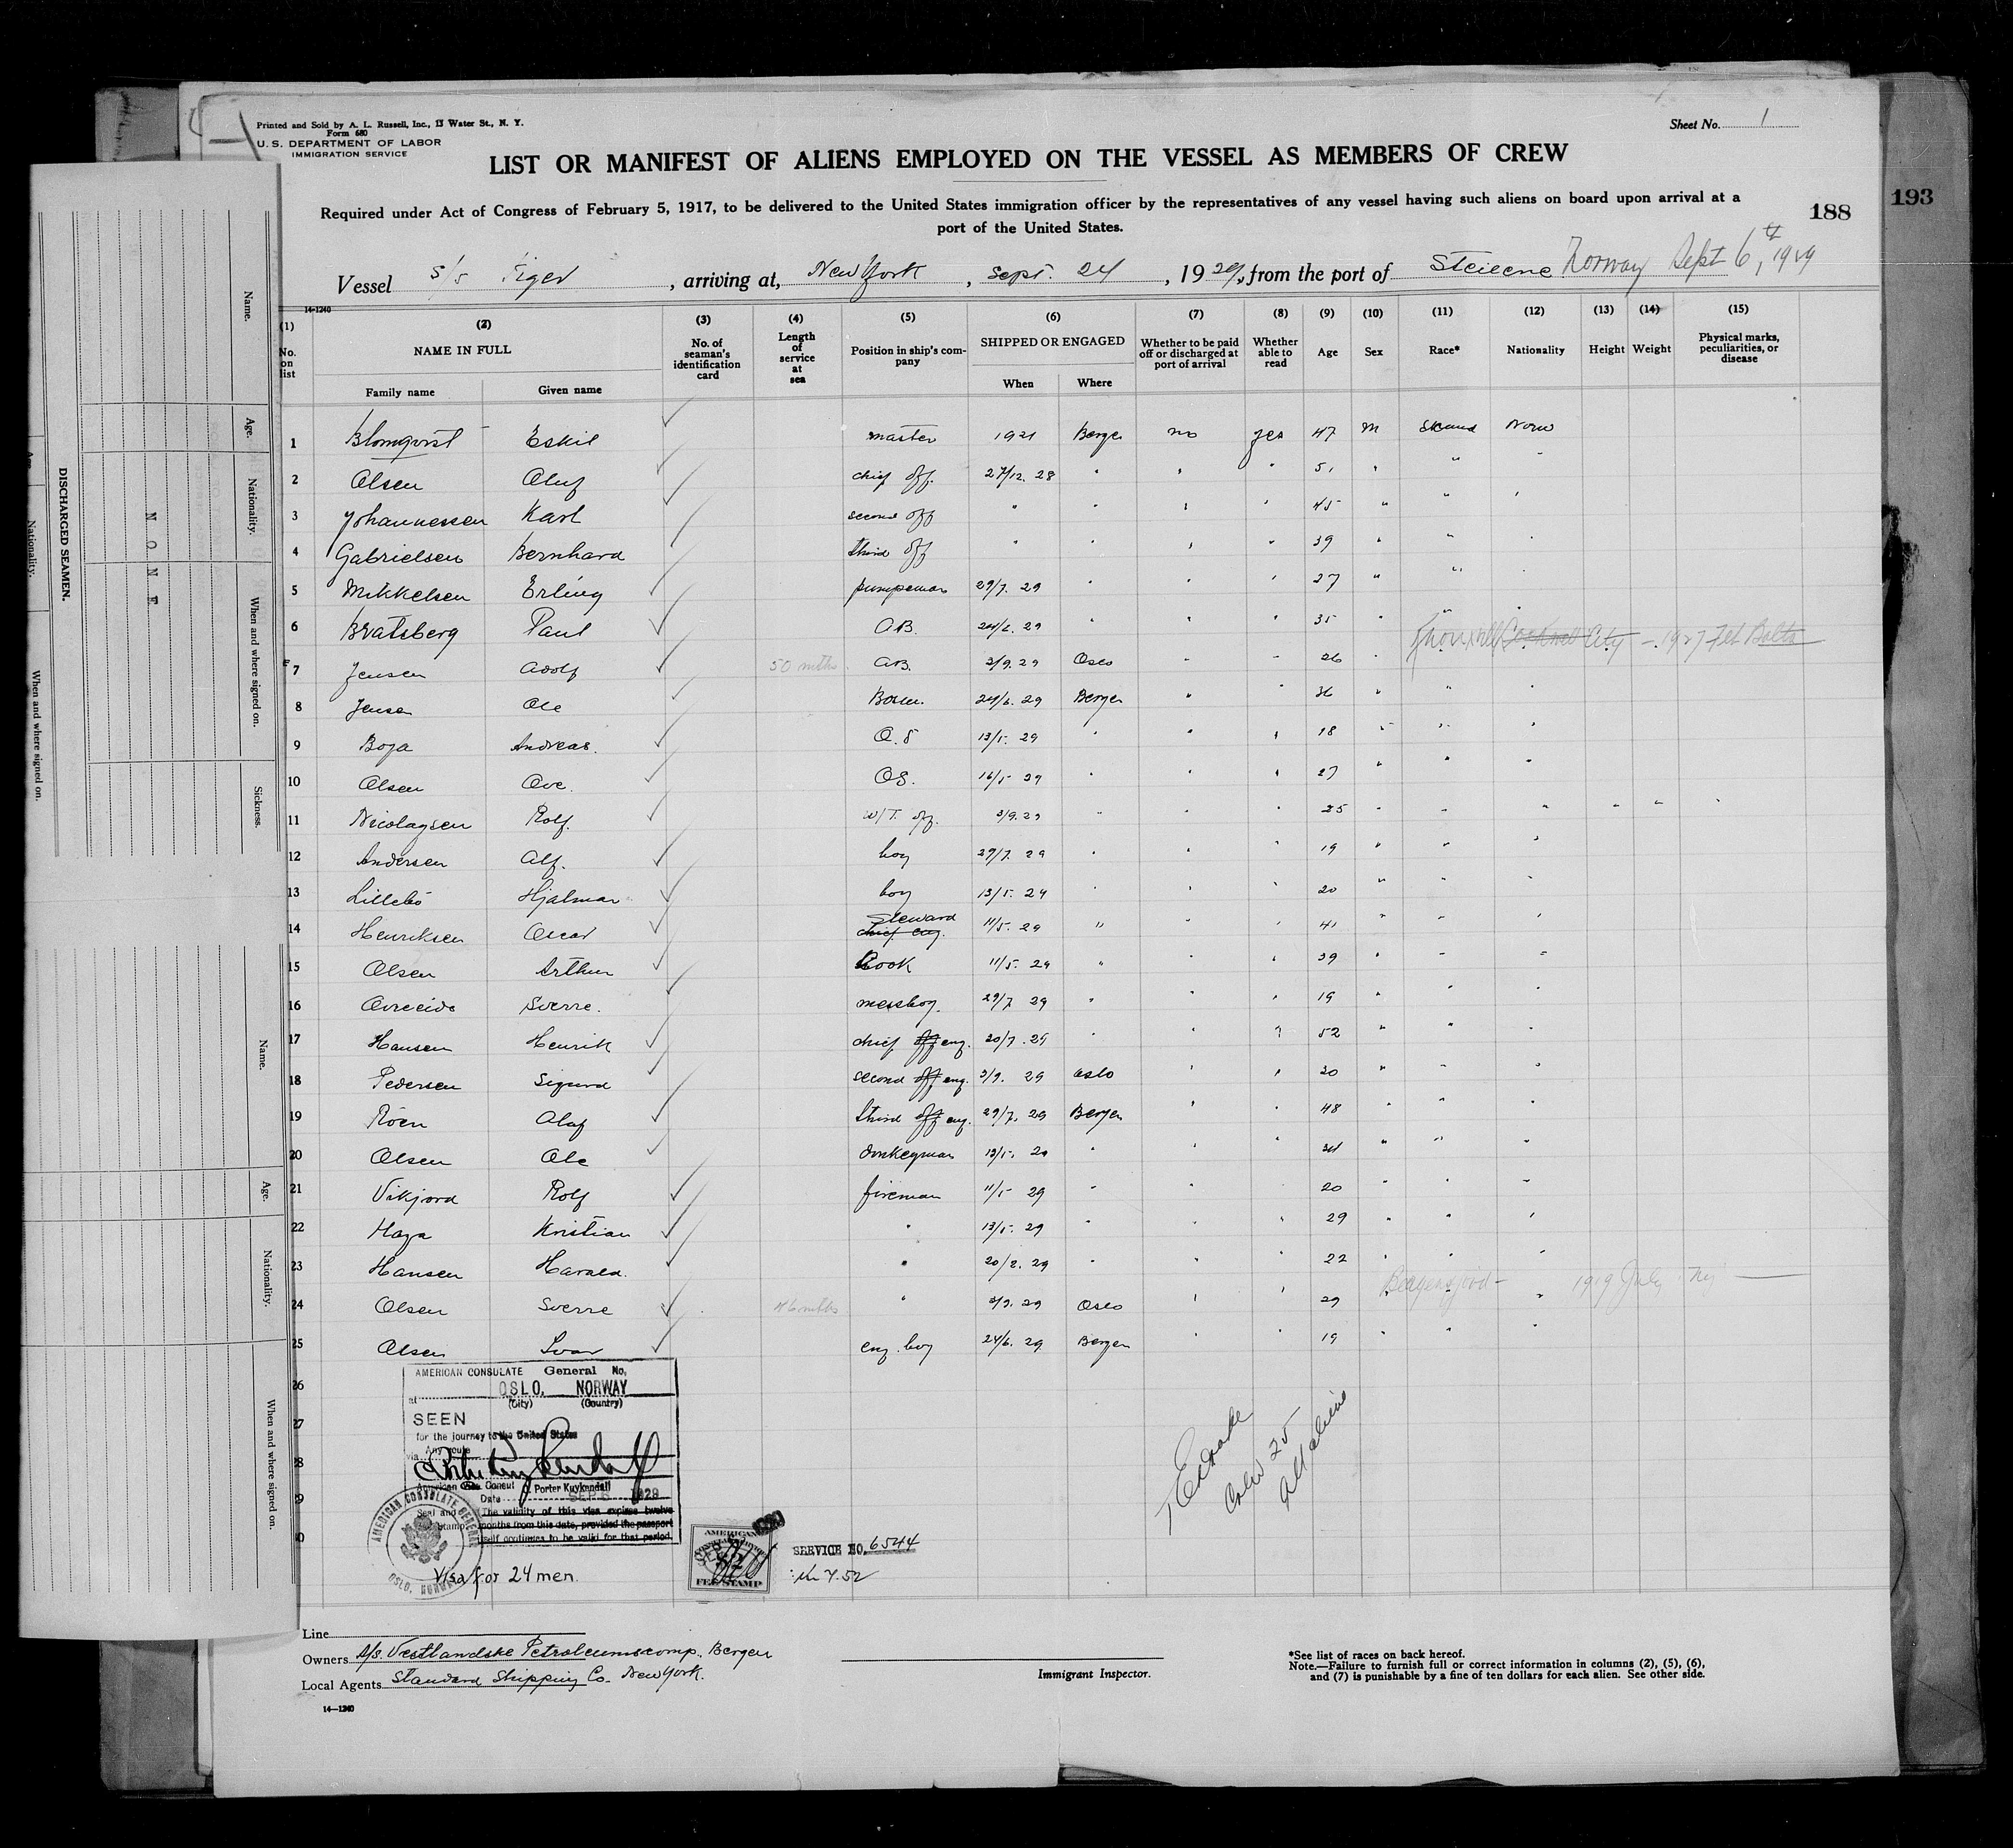 Printed and Sold by A. L. Russell, Inc., 13 Water St., N. Y.
Form 680
U. S. DEPARTMENT OF LABOR
IMMIGRATION SERVICE
Sheet No. 1
LIST OR MANIFEST OF ALIENS EMPLOYED ON THE VESSEL AS MEMBERS OF CREW
Required under Act of Congress of February 5, 1917, to be delivered to the United States immigration officer by the representatives of any vessel having such aliens on board upon arrival at a
port of the United States.
188
193
Vessel S/S Tiger, arriving at, New York, Sept. 24, 1929, from the port of Steilene Norway Sept 6th, 1929
14-1240
(1) No. on list
(2) NAME IN FULL Family name Given name
(3) No. of seaman's identification card
(4) Length of service at sea
(5) Position in ship's company
(6) SHIPPED OR ENGAGED When Where
(7) Whether to be paid off or discharged at port of arrival
(8) Whether able to read
(9) Age
(10) Sex
(11) Race*
(12) Nationality
(13) Height
(14) Weight
(15) Physical marks, peculiarities, or disease
1 Blomqvist Eskil master 1921 Bergen no yes 47 M Scand Norw
2 Olsen Oluf chief off. 27/12. 28 " " " 51 " " "
3 Johannessen Karl second off " " " " 45 " " "
4 Gabrielsen Bernhard third off " " " " 39 " " "
5 Mikkelsen Erling pumpeman 29/7. 29 " " " 27 " " "
6 Bratsberg Paul A.B. 24/6. 29 " " " 35 " " "
7 Jensen Adolf 50 mths. A.B. 3/9. 29 Oslo " " 26 " Knoxville City - 1927 Feb Balto
8 Jensen Ole Bosun. 24/6. 29 Bergen " " 36 " " "
9 Boga Andreas. O.S 13/5. 29 " " " 18 " " "
10 Olsen Ove. OS. 16/5 29 " " " 27 " " "
11 Nicolaysen Rolf. W/T. off. 3/9. 29 " " " 25 " " " " " "
12 Andersen Alf. boy 29/7. 29 " " " 19 " " "
13 Lillebö Hjalmar boy 13/5. 29 " " " 20 " " "
14 Henriksen Oscar Steward chief eng. 11/5. 29 " " " 41 " " "
15 Olsen Arthur Cook 11/5. 29 " " " 39 " " "
16 Sverre. messboy. 29/7 29 " " " 19 " " "
17 Hansen Henrik chief off eng. 20/7. 29 " " " 52 " " "
18 Pedersen Sigurd second off eng. 3/9. 29 Oslo " " 30 " " "
19 Röen Olaf third off eng. 29/7. 29 Bergen " " 48 " " "
20 Olsen Ole donkeyman 13/5. 29 " " " 34 " " "
21 Vikjord Rolf fireman 11/5 29 " " " 20 " " "
22 Haga Kristian " 13/5. 29 " " " 29 " " "
23 Hansen Harald. " 20/2. 29 " " " 22 " " "
24 Olsen Sverre 46 mths " 3/9. 29 Oslo " " 29 " Bergensfjord - " 1919 July Ny
25 Olsen Ivar eng. boy 24/6. 29 Bergen " " 19 " " "
26
27
28
29
30
AMERICAN CONSULATE General No.
at OSLO, NORWAY
(City) (Country)
SEEN
for the journey to the United States
via Any route
American Consul Porter Kuykendall
Date SEP 6 1929
Seal and Stamp
The validity of this visa expires twelve
months from this date, provided the passport
itself continues to be valid for that period.
AMERICAN CONSULATE GENERAL
OSLO, NORWAY
Visa for 24 men.
AMERICAN
FEE STAMP
SERVICE NO. 6544
Kr 7.52
Crew 25
All aliens
Line
Owners A/S. Vestlandske Petroleumscomp. Bergen
Local Agents Standard Shipping Co. New York.
Immigrant Inspector.
*See list of races on back hereof.
Note.—Failure to furnish full or correct information in columns (2), (5), (6),
and (7) is punishable by a fine of ten dollars for each alien. See other side.
14—1240
DISCHARGED SEAMEN.
NONE
Name.
Age.
Nationality.
When and where signed on.
Sickness.
Name.
Age.
Nationality.
When and where signed on.
Nationality.
When and where signed on.